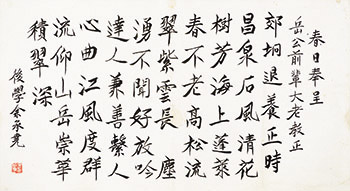 春日奉呈
岳公前輩大老教正
郊坰退養正時
昌泉石風清花
樹芳海上蓬萊
春不老高松流
翠紫雲長塵
湧不聞好放吟
達人兼善繫人
心曲江風度群
流仰山岳崇華
積翠深
後學余承堯